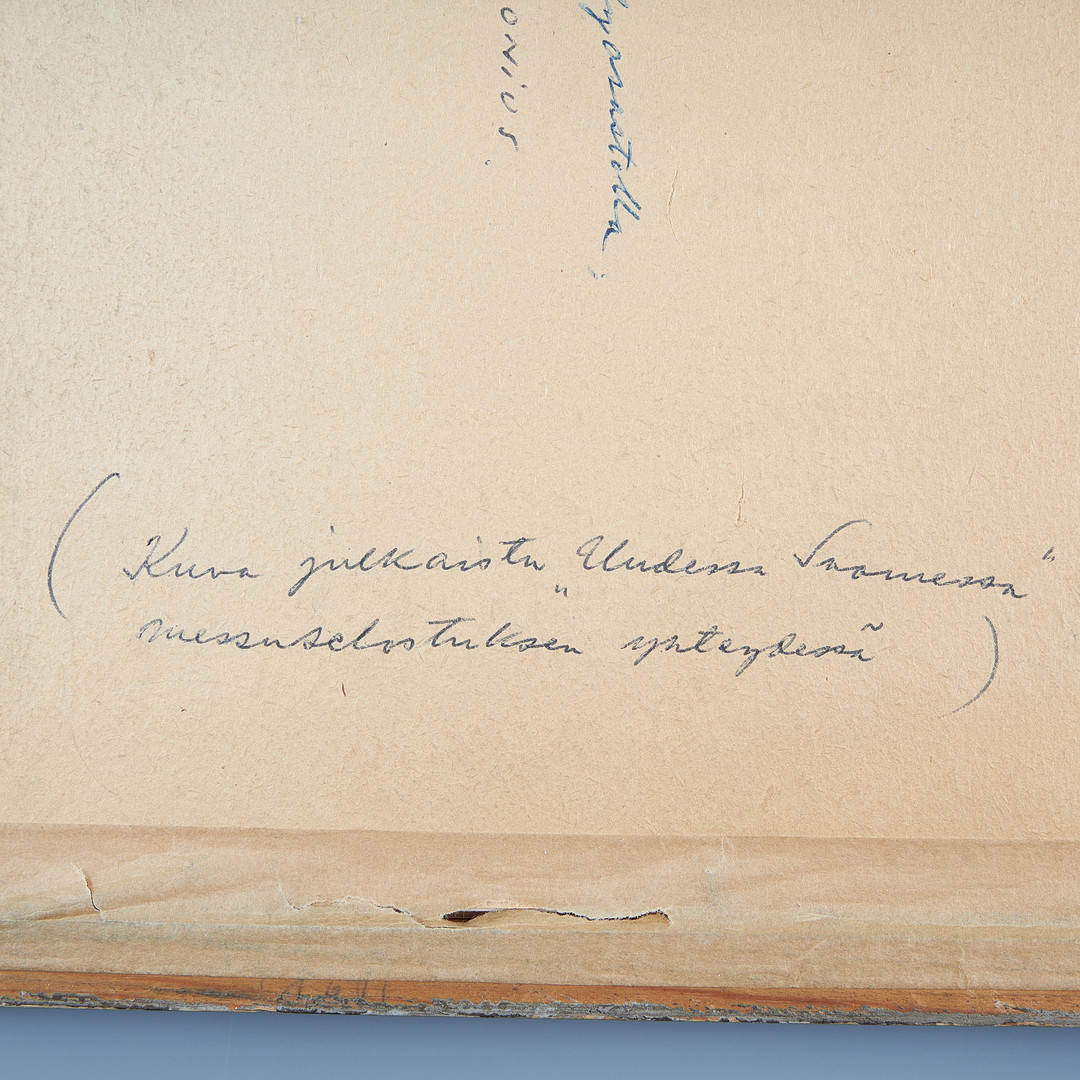 onius.
(Kuva julkaistu „Uudessa Suomessa"
messuselostuksen yhteydessä)